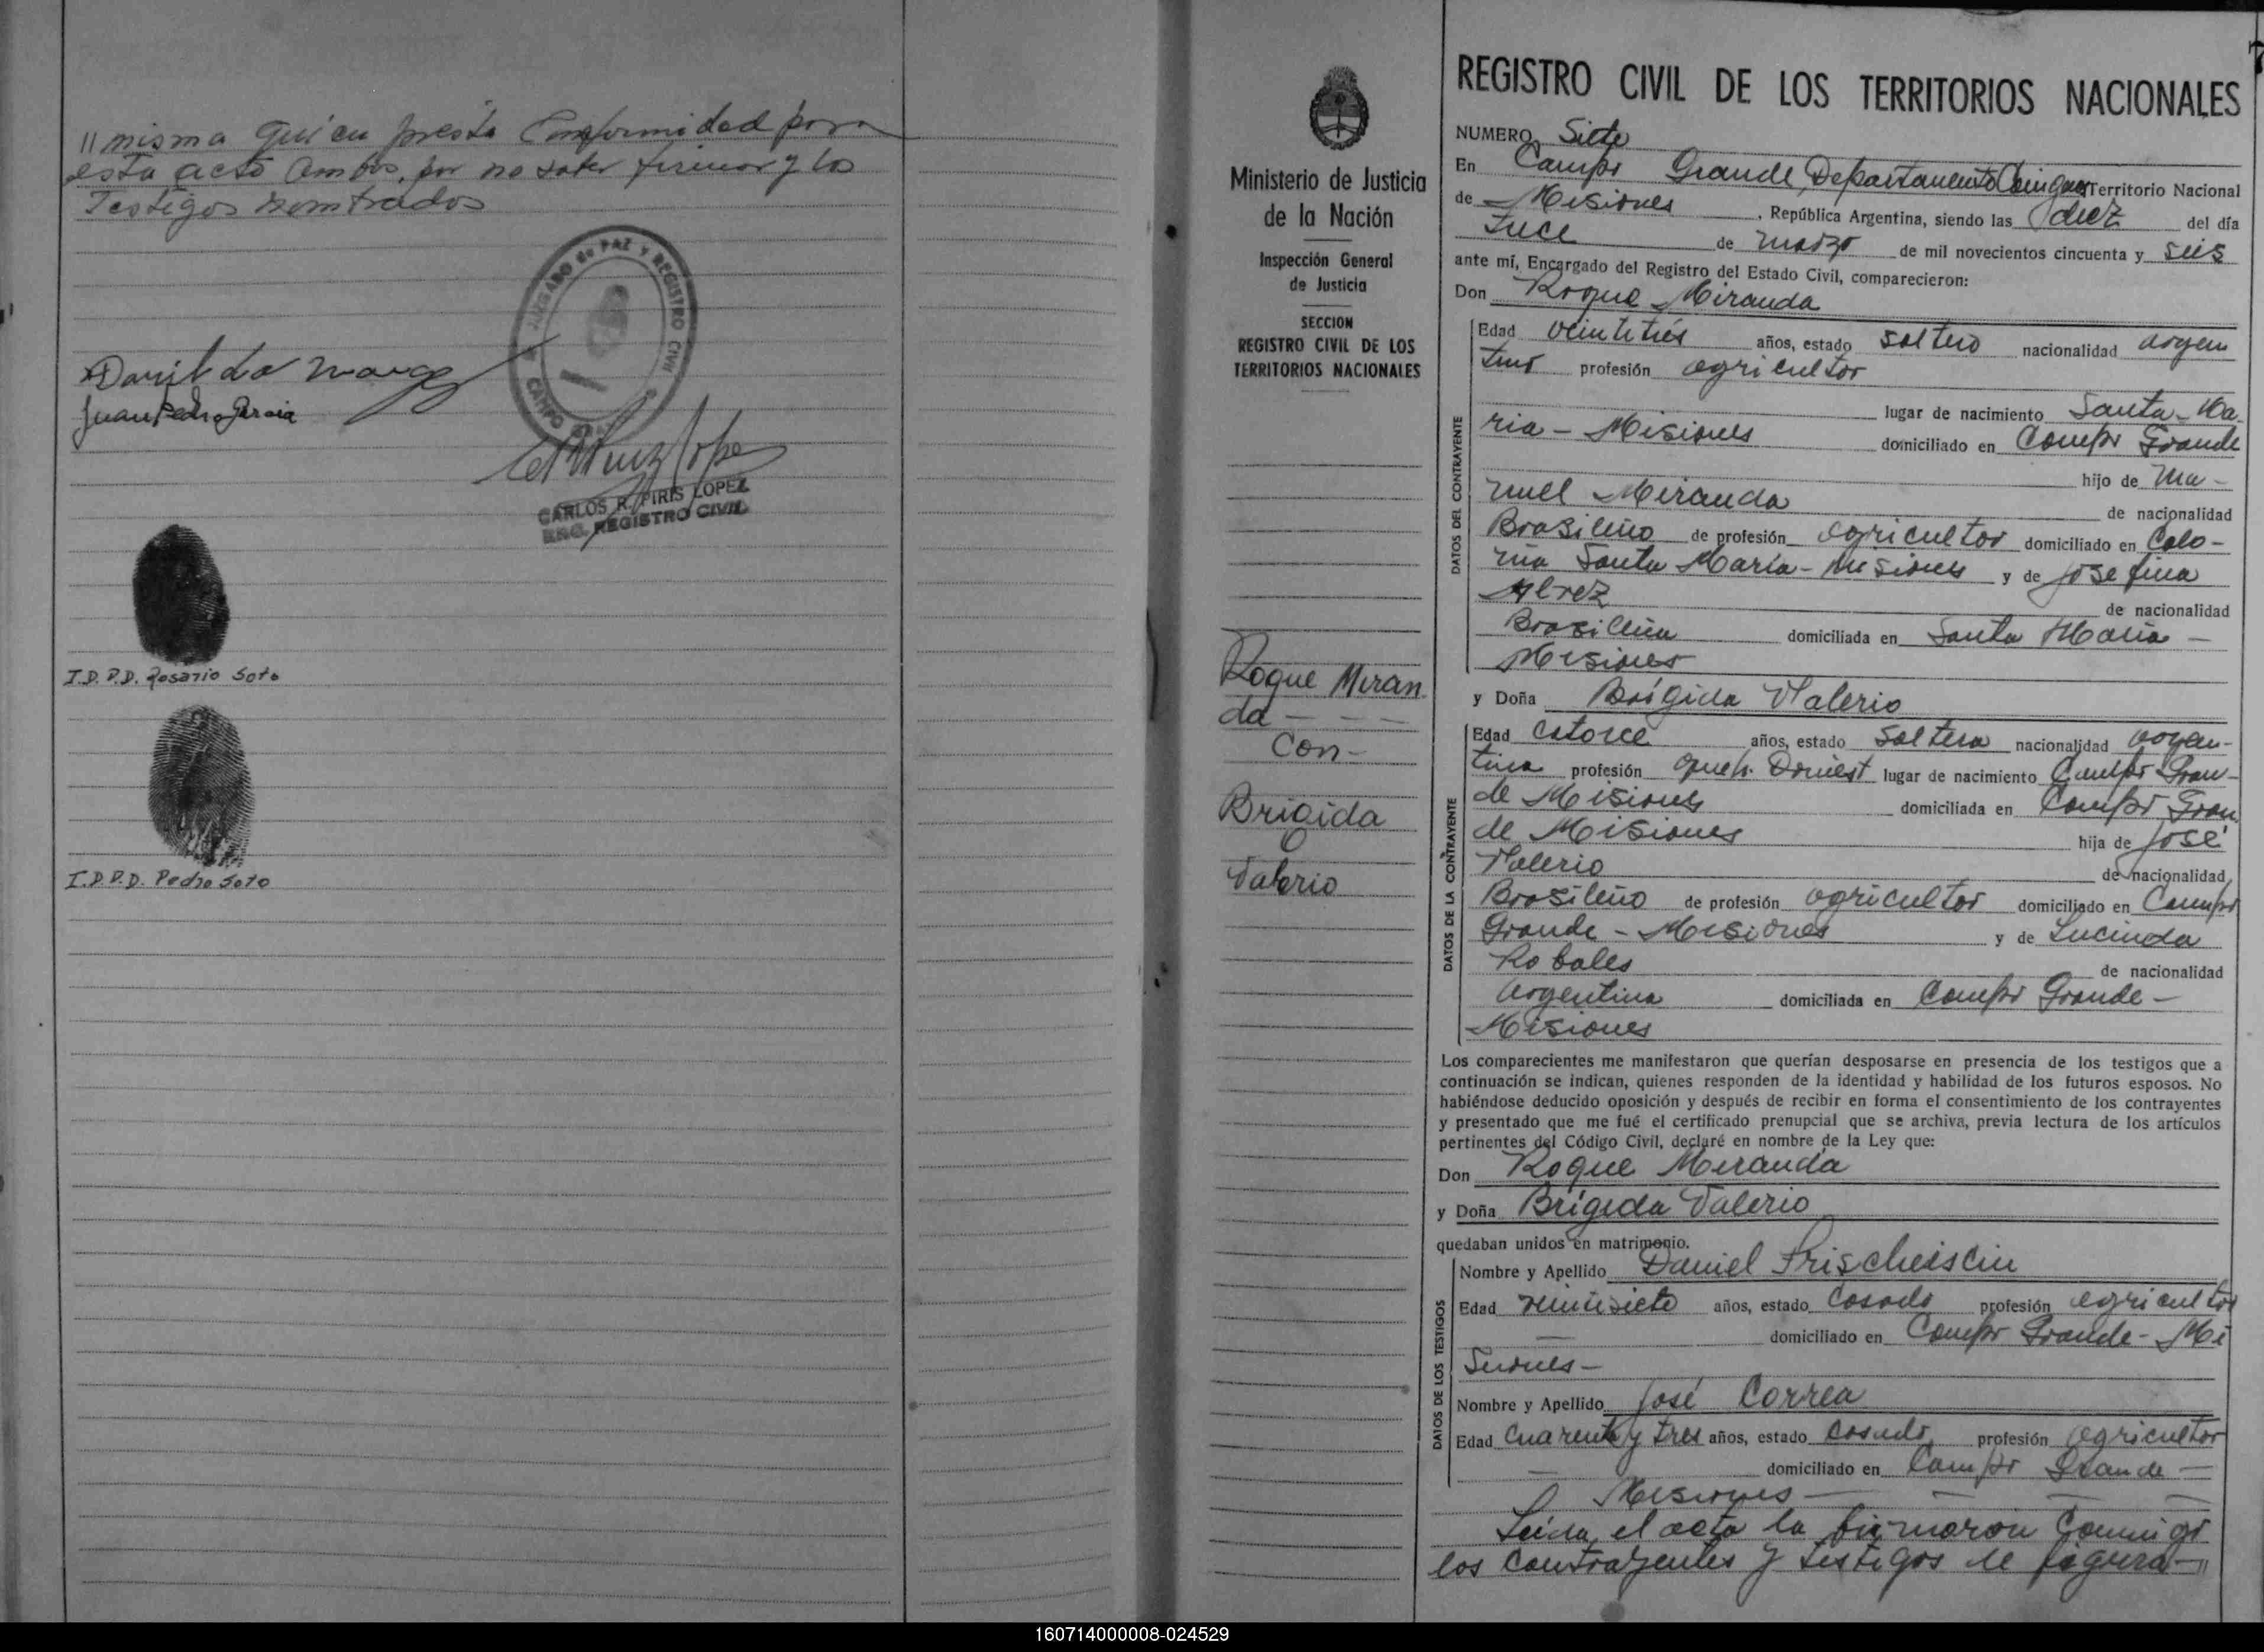 // misma quien presta Conformidad para
este acto ambos, por no saber firmar y los
Testigos nombrados
JUZGADO de PAZ y REGISTRO CIVIL
CAMPO GRANDE
Juan Pedro Garcia
CARLOS R. PIRIS LOPEZ
ENC. REGISTRO CIVIL
I.D.P.D. Rosario Soto
I.D.P.D. Pedro Soto
Ministerio de Justicia
de la Nación
Inspección General
de Justicia
SECCION
REGISTRO CIVIL DE LOS
TERRITORIOS NACIONALES
Roque Miran
da - - -
Con -
Brigida
Valerio
7
REGISTRO CIVIL DE LOS TERRITORIOS NACIONALES
NUMERO Siete
En Campo Grande, Departamento Cainguas Territorio Nacional
de Misiones, República Argentina, siendo las diez del día
de marzo de mil novecientos cincuenta y seis
ante mí, Encargado del Registro del Estado Civil, comparecieron:
Don Roque Miranda
DATOS DEL CONTRAYENTE
Edad veintitrés años, estado soltero nacionalidad argen
tino profesión agricultor
lugar de nacimiento Santa Ma
ria - Misiones domiciliado en Campo Grande
hijo de Ma-
nuel Miranda de nacionalidad
Brasileño de profesión agricultor domiciliado en Colo-
nia Santa María - Misiones y de Josefina
de nacionalidad
Brasileña domiciliada en Santa María -
Misiones
y Doña Brígida Valerio
DATOS DE LA CONTRAYENTE
Edad catorce años, estado Soltera nacionalidad argen-
tina profesión Domest lugar de nacimiento Campo Gran-
de Misiones domiciliada en Campo Gran
de Misiones hija de José
Valerio de nacionalidad
Brasileño de profesión agricultor domiciliado en Campo
Grande - Misiones y de Lucinda
Robales de nacionalidad
argentina domiciliada en Campo Grande -
Misiones
Los comparecientes me manifestaron que querían desposarse en presencia de los testigos que a
continuación se indican, quienes responden de la identidad y habilidad de los futuros esposos. No
habiéndose deducido oposición y después de recibir en forma el consentimiento de los contrayentes
y presentado que me fué el certificado prenupcial que se archiva, previa lectura de los artículos
pertinentes del Código Civil, declaré en nombre de la Ley que:
Don Roque Miranda
y Doña Brígida Valerio
quedaban unidos en matrimonio.
DATOS DE LOS TESTIGOS
Nombre y Apellido Daniel Frischeisein
Edad veintisiete años, estado Casado profesión agricultor
domiciliado en Campo Grande - Mi
siones -
Nombre y Apellido José Correa
Edad cuarenta y tres años, estado casado profesión agricultor
domiciliado en Campo Grande -
Misiones -
Leída el acta la firmaron conmigo
los contrayentes y testigos
160714000008-024529